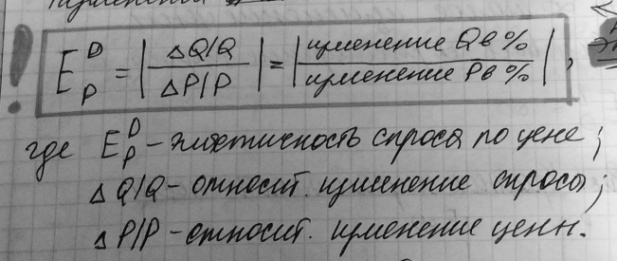 E_P^D = | ΔQ/Q / ΔP/P | = | изменение Q в % / изменение P в % | ,
где E_P^D - эластичность спроса по цене;
ΔQ/Q - относит. изменение спроса;
ΔP/P - относит. изменение цены.